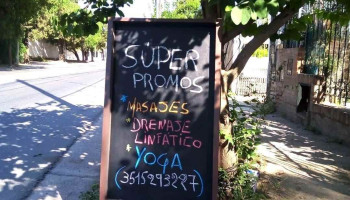 SUPER
PROMOS
* MASAJES
* DRENAJE
LINFATICO
* YOGA
(3515293287)